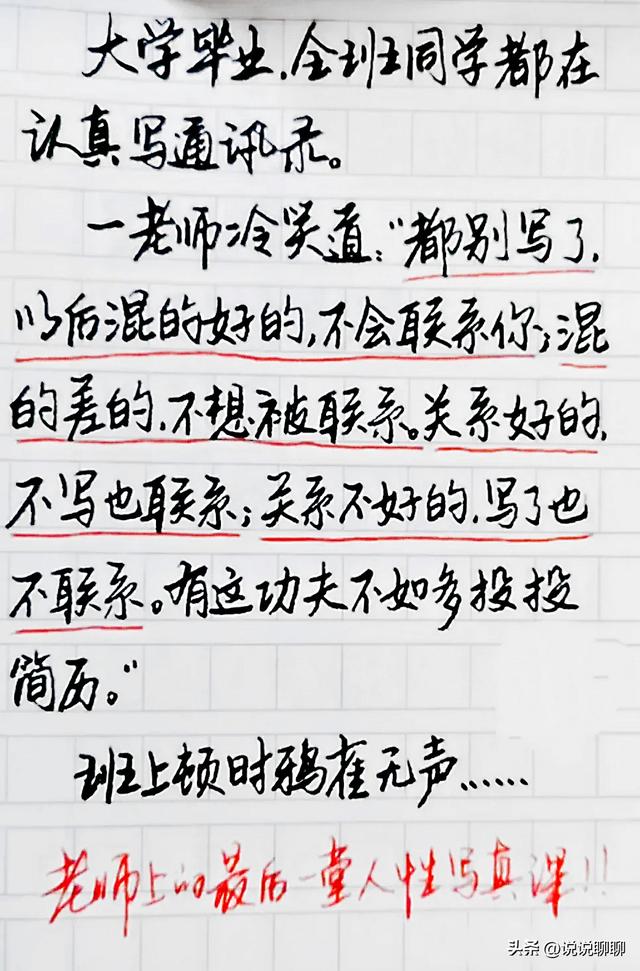 大学毕业,全班同学都在
认真写通讯录。
一老师冷笑道:“都别写了,
以后混的好的,不会联系你;混
的差的,不想被联系。关系好的,
不写也联系;关系不好的,写了也
不联系。有这功夫不如多投投
简历。”
班上顿时鸦雀无声……
老师上的最后一堂人性写真课!!
头条 @说说聊聊